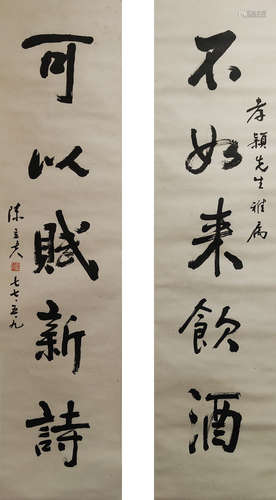 不如来飲酒
孝穎先生雅属
可以賦新詩
陳立夫
七七·五·九